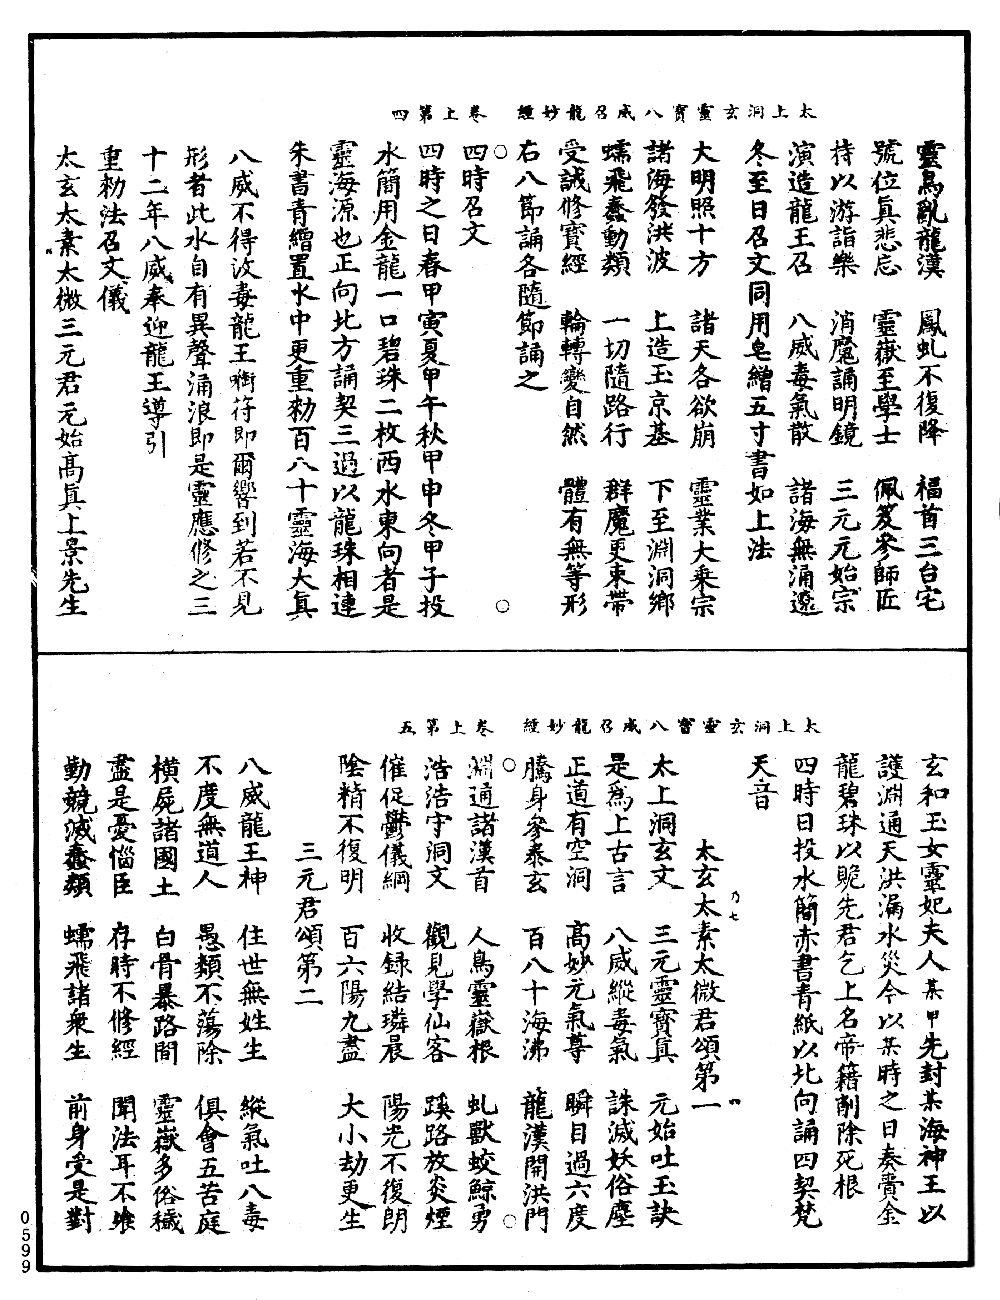 太上洞玄靈寶八威召龍妙經　卷上第四
靈鳥亂龍漢　鳳虬不復降　福首三台宅
號位真悲忘　靈嶽至學士　佩笈參師匠
持以游詣樂　消魔誦明鏡　三元元始宗
演造龍王召　八威毒氣散　諸海無涌遼
冬至日召文同用皂繒五寸書如上法
大明照十方　諸天各欲崩　靈業大乘宗
諸海發洪波　上造玉京基　下至淵洞鄉
蠕飛蠢動類　一切隨路行　群魔更束帶
受誡修寶經　輪轉變自然　體有無等形
右八節誦各隨節誦之
四時召文
四時之日春甲寅夏甲午秋甲申冬甲子投
水簡用金龍一口碧珠二枚西水東向者是
靈海源也正向北方誦契三過以龍珠相連
朱書青繒置水中更重勑百八十靈海大真
八威不得汝毒龍王銜符即爾響到若不見
形者此水自有異聲涌浪即是靈應修之三
十二年八威奉迎龍王導引
重勑法召文儀
太玄太素太微三元君元始高真上景先生
太上洞玄靈寶八威召龍妙經　卷上第五
玄和玉女靈妃夫人某甲先封某海神王以
護淵通天洪漏水災今以某時之日奏賷金
龍碧珠以貺先君乞上名帝籍削除死根
四時日投水簡赤書青紙以北向誦四契梵
天音
太玄太素太微君頌第一
乃七
太上洞玄文　三元靈寶真　元始吐玉訣
是為上古言　八威縱毒氣　誅滅妖俗塵
正道有空洞　高妙元氣尊　瞬目過六度
騰身參泰玄　百八十海沸　龍漢開洪門
淵通諸漢首　人鳥靈嶽根　虬獸蛟鯨勇
浩浩守洞文　觀見學仙客　蹊路放炎煙
催促鬱儀綱　收録結璘晨　陽光不復朗
陰精不復明　百六陽九盡　大小劫更生
三元君頌第二
八威龍王神　住世無姓生　縱氣吐八毒
不度無道人　愚類不蕩除　俱會五苦庭
橫屍諸國土　白骨暴路間　靈嶽多俗穢
盡是憂惱臣　存時不修經　聞法耳不
勤競滅蠢類　蠕飛諸衆生　前身受是對
0599